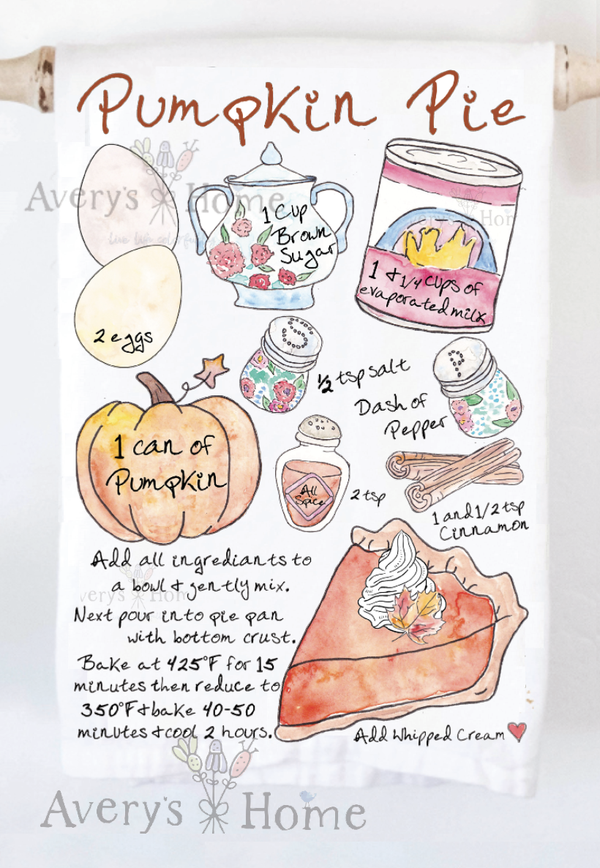 Pumpkin Pie
Avery's Home
Live life colorfully
2 eggs
1 Cup
Brown
Sugar
Home
1 & 1/4 cups of
evaporated milk
1/2 tsp salt
Dash of
Pepper
1 can of
Pumpkin
All
Spice
2 tsp
1 and 1/2 tsp
Cinnamon
Add all ingrediants to
a bowl & gently mix.
Avery's Home
Next pour into pie pan
with bottom crust.
Bake at 425°F for 15
minutes then reduce to
350°F & bake 40-50
minutes & cool 2 hours.
Add Whipped Cream
Avery's Home